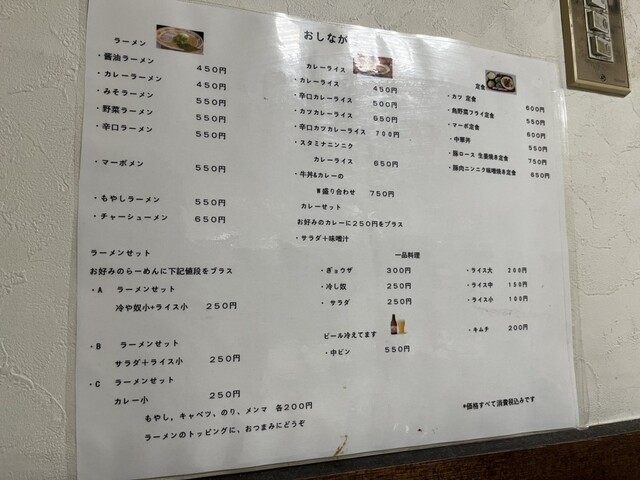 おしなが
ラーメン
・醤油ラーメン 450円
・カレーラーメン 450円
・みそラーメン 550円
・野菜ラーメン 550円
・辛口ラーメン 550円
・マーボメン 550円
・もやしラーメン 550円
・チャーシューメン 650円
カレーライス
・カレーライス 450円
・辛口カレーライス 500円
・カツカレーライス 650円
・辛口カツカレーライス 700円
・スタミナニンニク
カレーライス 650円
・牛丼&カレーの
W盛り合わせ 750円
カレーセット
お好みのカレーに250円をプラス
・サラダ+味噌汁
定食
・カツ 定食 600円
・鳥野菜フライ定食 550円
・マーボ定食 600円
・中華丼 550円
・豚ロース 生姜焼き定食 750円
・豚肉ニンニク味噌焼き定食 650円
ラーメンセット
お好みのらーめんに下記値段をプラス
・A ラーメンセット
冷や奴小+ライス小 250円
・B ラーメンセット
サラダ+ライス小 250円
・C ラーメンセット
カレー小 250円
もやし,キャベツ、のり、メンマ 各200円
ラーメンのトッピングに、おつまみにどうぞ
一品料理
・ぎょウザ 300円
・冷し奴 250円
・サラダ 250円
・ライス大 200円
・ライス中 150円
・ライス小 100円
・キムチ 200円
ビール冷えてます
・中ビン 550円
*価格すべて消費税込みです